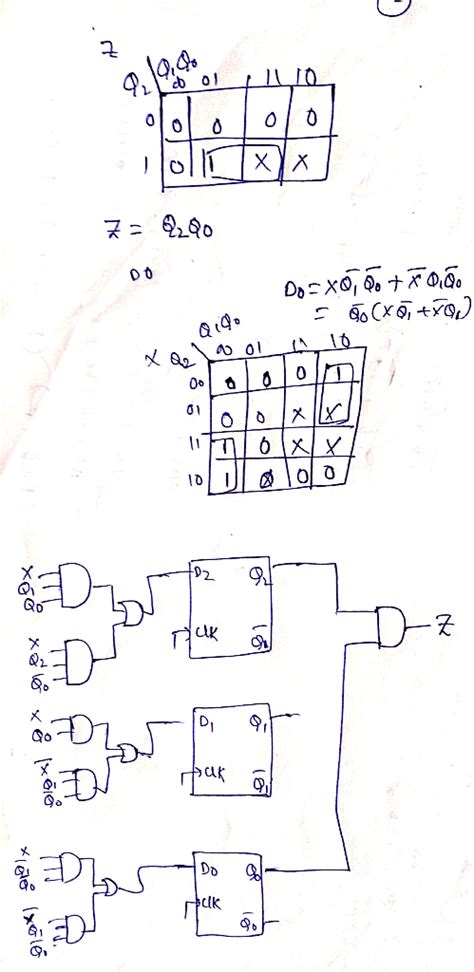 Z
Q2 \ Q1Q0
00 01 11 10
0 0 0 0 0
1 0 1 X X
Z = Q2Q0
D0
D0 = XQ̄1Q̄0 + X̄Q1Q̄0
= Q̄0(XQ̄1 + X̄Q1)
Q1Q0
XQ2 00 01 11 10
00 0 0 0 1
01 0 0 X X
11 1 0 X X
10 1 0 0 0
X
Q1
Q0
D2 Q2
Z
X
Q2
Q̄0
CLK
X
Q0
D1 Q1
X̄
Q1
Q̄0
CLK Q̄1
X
Q̄1
Q̄0
D0 Q0
X̄
Q1
Q̄0
CLK Q̄0